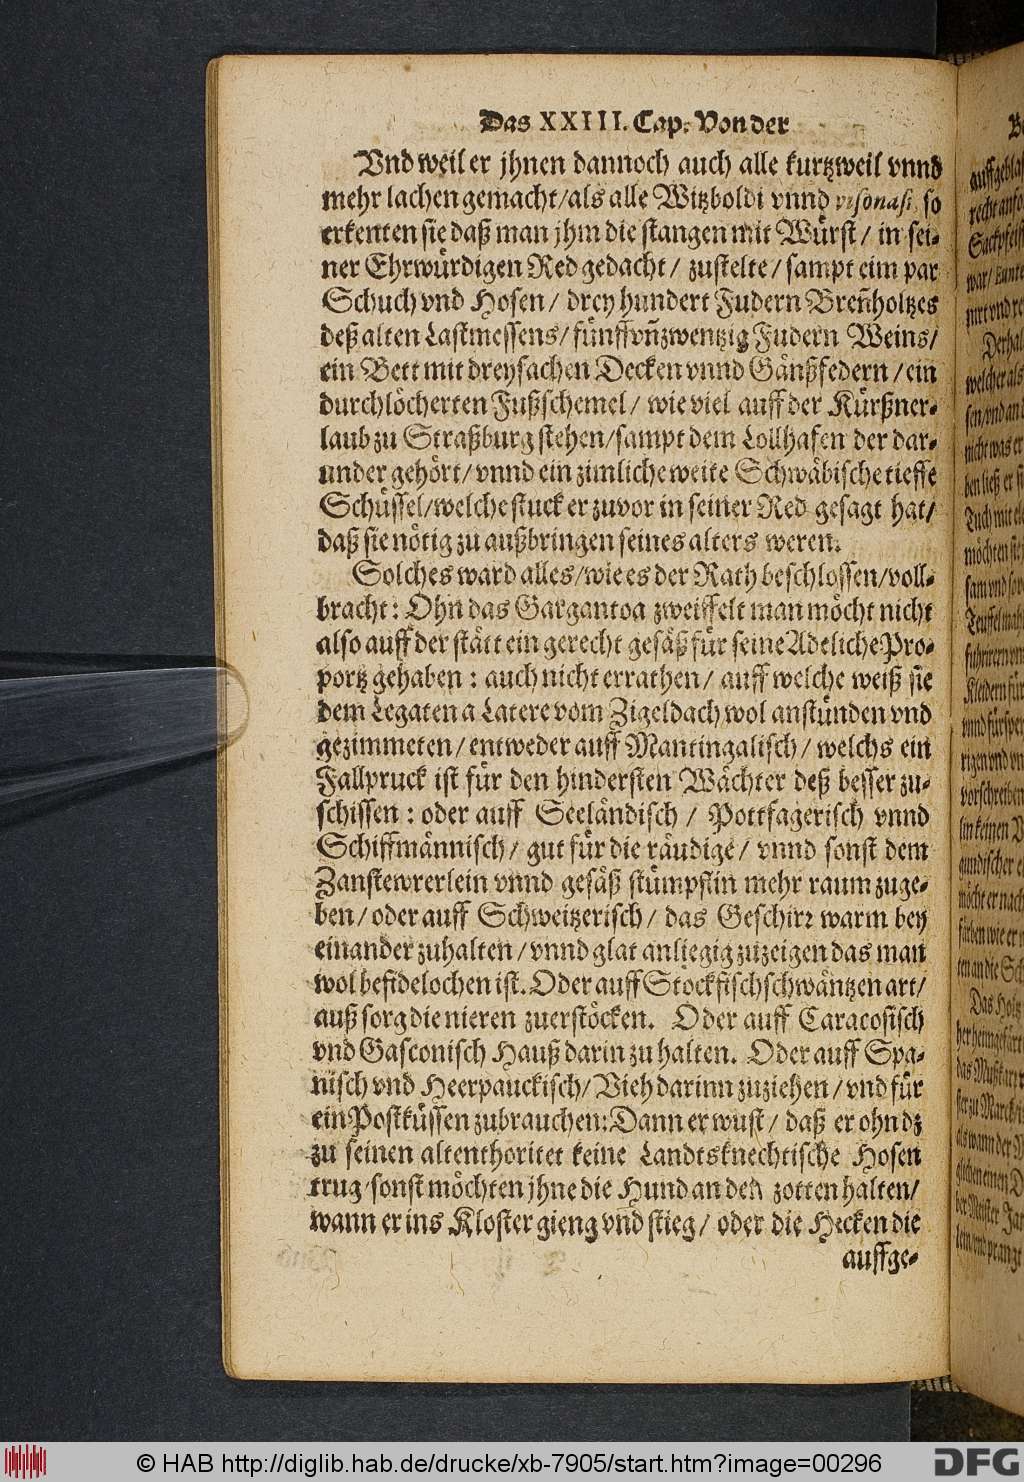 Das XXIII. Cap. Von der
Vnd weil er jhnen dannoch auch alle kurtzweil vnnd
mehr lachen gemacht/als alle Witzboldi vnnd visonasi, so
erkenten sie daß man jhm die stangen mit Würst/ in sei-
ner Ehrwürdigen Red gedacht/ zustelte/ sampt eim par
Schuch vnd Hosen/ drey hundert Fudern Breñholtzes
deß alten Lastmessens/ fünff vñ zwentzig Fudern Weins/
ein Bett mit dreyfachen Decken vnnd Gänßfedern/ein
durchlöcherten Fußschemel/ wie viel auff der Kürßner-
laub zu Straßburg stehen/sampt dem Lollhafen der dar-
under gehört/ vnnd ein zimliche weite Schwäbische tieffe
Schüssel/welche stuck er zuvor in seiner Red gesagt hat/
daß sie nötig zu außbringen seines alters weren.
Solches ward alles/wie es der Rath beschlossen/voll-
bracht: Ohn das Gargantoa zweiffelt man möcht nicht
also auff der stätt ein gerecht gesäß für seine Adeliche Pro-
portz gehaben: auch nicht errathen/ auff welche weiß sie
dem Legaten a Latere vom Zigeldach wol anstünden vnd
gezimmeten/entweder auff Mantingalisch/ welchs ein
Fallpruck ist für den hindersten Wächter deß besser zu-
schissen: oder auff Seeländisch/ Pottfagerisch vnnd
Schiffmännisch/ gut für die räudige/ vnnd sonst dem
Zanstewrerlein vnnd gesäß stümpflin mehr raum zuge-
ben/oder auff Schweitzerisch/ das Geschirr warm bey
einander zuhalten/vnnd glat anliegig zuzeigen das man
wol befidelochen ist. Oder auff Stockfischschwäntzen art/
auß sorg die nieren zuerstöcken. Oder auff Caracosisch
vnd Gasconisch Hauß darin zu halten. Oder auff Spa-
nisch vnd Heerpauckisch/ Vieh darinn zuziehen/vnd für
ein Postküssen zubrauchen: Dann er wust/ daß er ohn dz
zu seinen altenthoritet keine Landtsknechtische Hosen
trug/sonst möchten jhne die Hund an den zotten halten/
wann er ins Kloster gieng vnd stieg/ oder die Hecken die
auffge-
© HAB http://diglib.hab.de/drucke/xb-7905/start.htm?image=00296
DFG